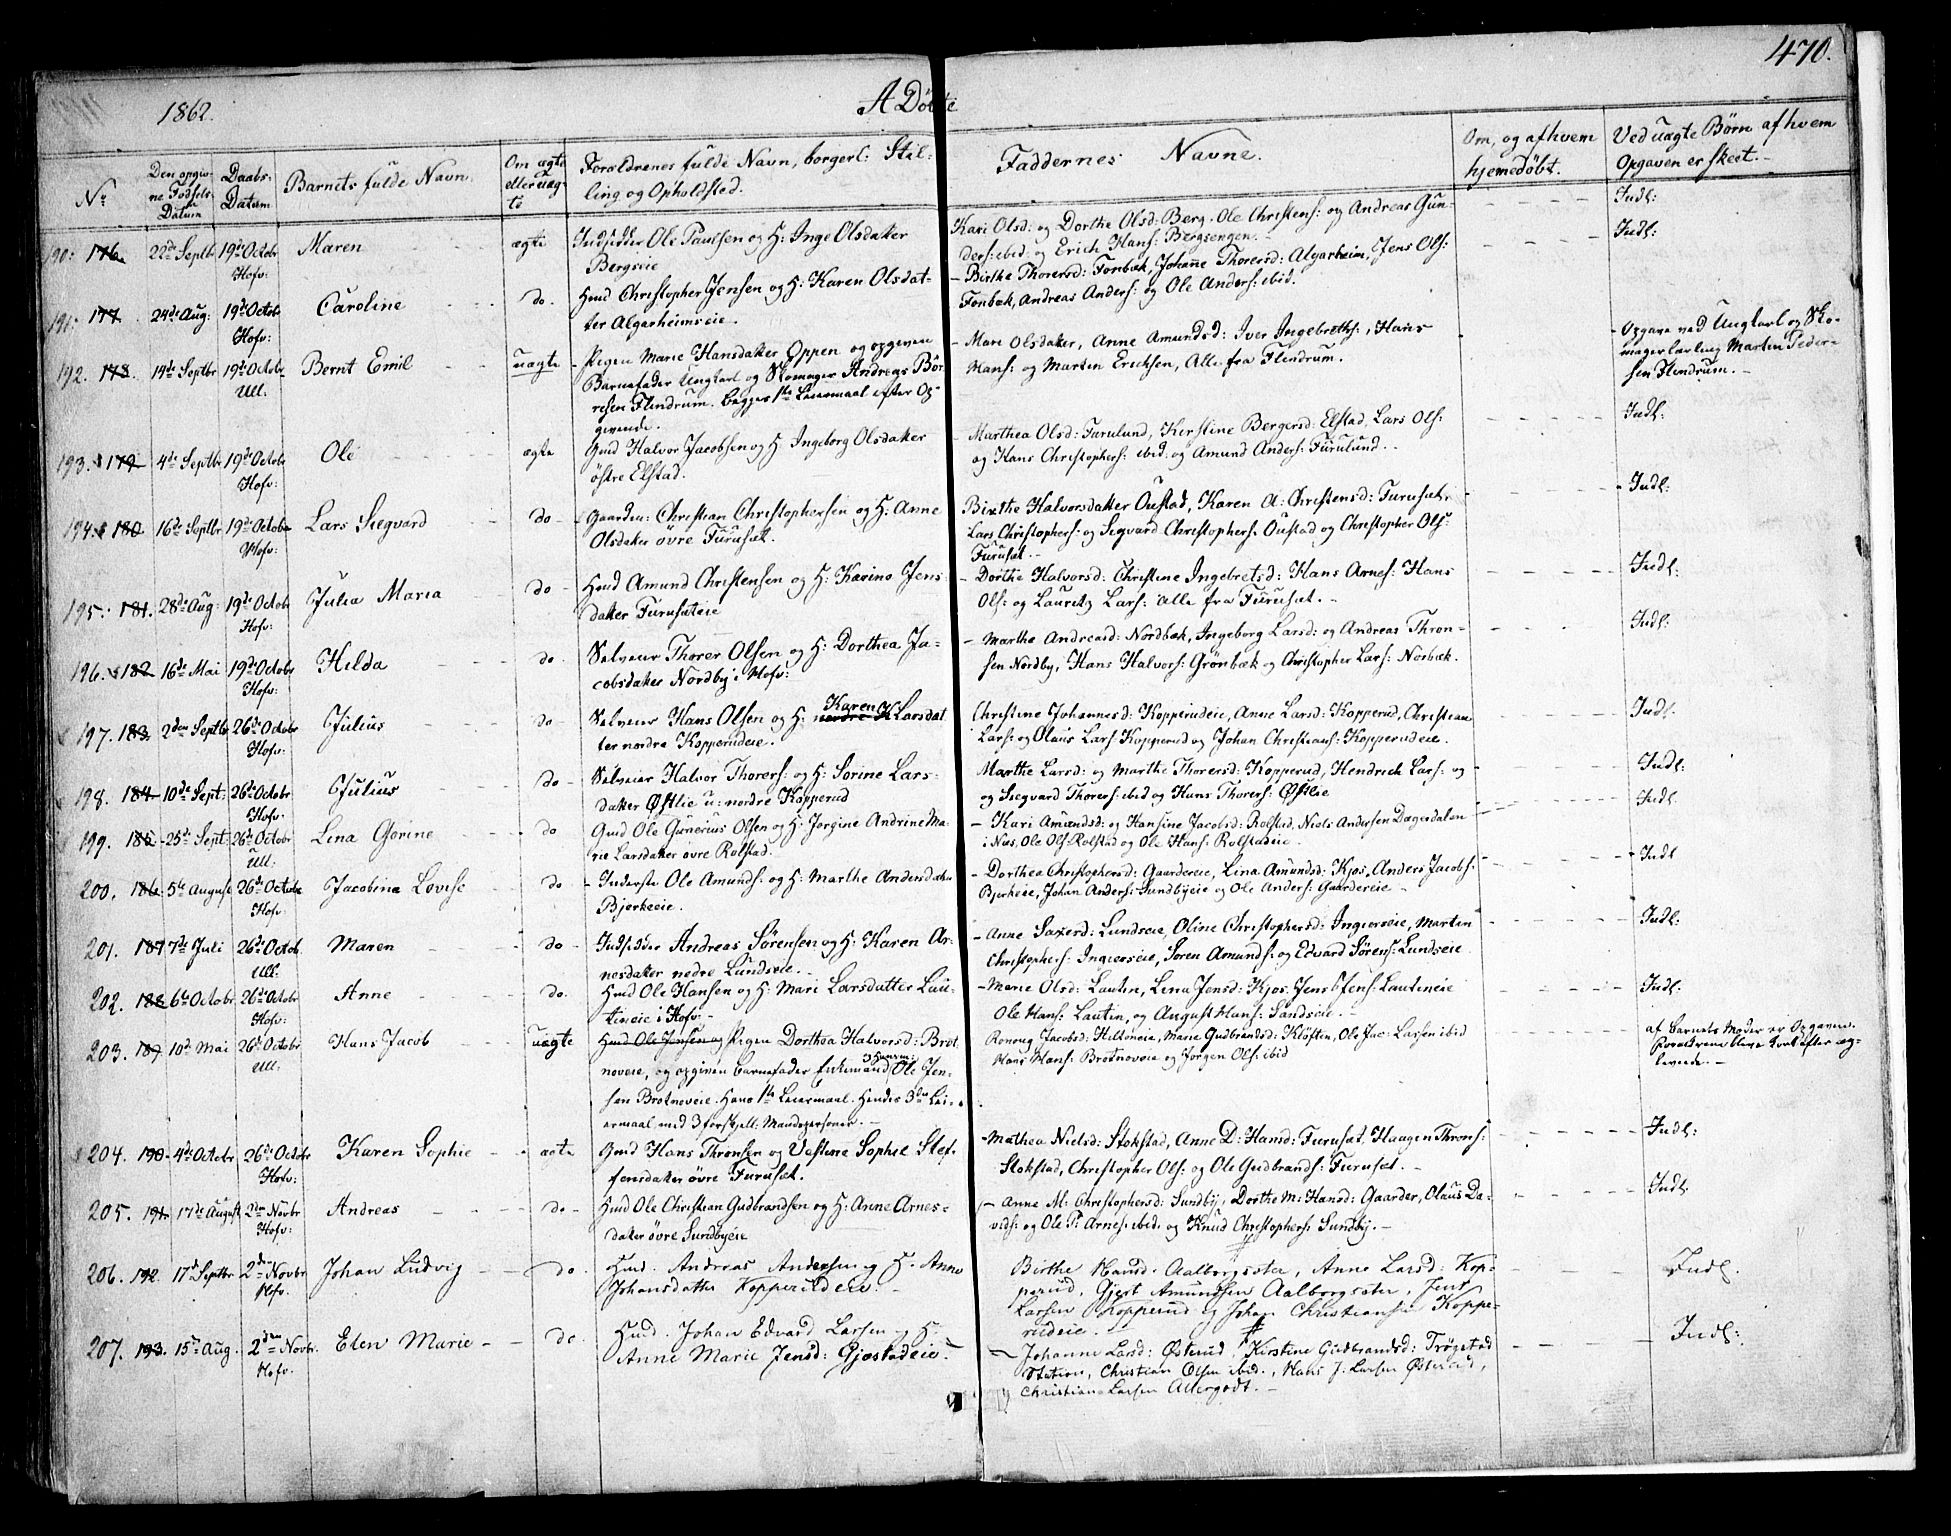 470.
1862.
A Döbte
No
Den opgiv-
ne Fødsels
Datum
Daabs-
Datum
Barnets fulde Navn.
Om ægte
eller uæg-
te
Forældrenes fulde Navn, borgerl: Stil-
ling og Opholdsted.
Faddernes Navne.
Om, og af hvem
hjemedøbt.
Ved uægte Børn af hvem
Opgaven er skeet.-
190. 176. 22de Septbr 19de Octobr Hofv: Maren ægte
Indsidder Ole Paulsen og H: Inge Olsdatter
Bergseie
Kari Olsd: og Dorthe Olsd: Berg. Ole Christens: og Andreas Gun-
ders: ibid: og Erich Hans: Bergsengen.-
Indl:
191. 177. 24de Aug: 19de Octobr Hofv: Caroline do.
Huusmd Christopher Jensen og H: Karen Olsdat-
ter Algarheimseie.
- Birthe Thorersd: Fonbæk, Johanne Thorersd: Algarheim, Jens Ols:
Fonbæk, Andreas Anders: og Ole Anders: ibid.
Indl:
192. 178. 14de Septbr 19de Octobr Ull: Bernt Emil uægte
- Pigen Marie Hansdatter Oppen og opgiven
Barnefader Ungkarl og Skomager Andreas Bör-
resen Flendrum. begges 1ste Leiermaal efter Op-
givende.
- Mari Olsdatter, Anne Amundsd: Iver Ingebreths:, Hans
Hans: og Martin Ericksen, Alle fra Flendrum.
Opgave ved Ungkarl og Sko-
magerlærling Martin Peder-
sen Flendrum.-
193. 179 4de Septbr 19de Octobr Hofv: Ole ægte
Gmd Halvor Jacobsen og H. Ingeborg Olsdatter
östre Elstad.
- Marthea Olsd: Furulund, Kirstine Bergersd: Elstad, Lars Ols:
og Hans Christophers: ibid: og Amund Anders: Furulund.
Indl:
194. 180 16de Septbr 19de Octobr Hofv: Lars Siegvard do
Gaardm: Christian Christophersen og H: Anne
Olsdatter övre Furuset.
Birthe Halvorsdatter Oustad, Karen A: Christensd: Furuset,
Lars Christophers: og Segvard Christophers: Oustad og Christopher Ols:
Furuset.-
Indl:
195. 181. 28de Aug: 19de Octobr Hofv: Julia Maria do
Hmd Amund Christensen og H: Karine Jens-
datter Furuseteie
- Dorthe Halvorsd: Christine Ingebretsd: Hans Arnes: Hans
Ols: og Lauritz Lars: alle fra Furuset.-
Indl:
196. 182 16de Mai 19de Octobr Hofv: Hilda do.
Selveier Thorer Olsen og H: Dorthea Ja-
cobsdatter Nordby i Hofv:
- Marthe Andreasd: Nordbæk, Ingeborg Larsd: og Andreas Thron-
sen Nordby, Hans Halvors: Grönbæk og Christopher Lars: Norbæk.
Indl:
197. 183. 2den Septbr 26de Octobr Hofv: Julius do
Karen
Selveier Hans Olsen og H: nordre K Larsdat
ter nordre Kopperudeie.
Christine Johannesd: Kopperudeie, Anne Larsd: Kopperud, Christian
Lars: og Olaus Lars: Kopperud og Johan Christians: Kopperudeie.
Indl.
198. 184 10de Sept: 26de Octobr Hofv: Julius do
Selveier Halvor Thorers: og H: Sorine Lars-
datter Østlie u: nordre Kopperud
Marthe Larsd: og Marthe Thorersd: Kopperud, Hendrich Lars: og
og Siegvard Thorers: ibid og Hans Thorers: Østlie
Indl:
199. 185 25de Sept: 26de Octobr Ull: Lina Gorine do
Gmd Ole Gunerius Olsen og H: Jorgine Andrine Ma-
rie Larsdatter övre Rolstad.
- Kari Amundsd: og Hansine Jacobsd: Rolstad, Niels Andersen Dægerdalen
i Næs, Ole Ols: Rolstad og Ole Hans: Rolstadeie.-
Indl:
200. 186 5te August 26de Octobr Hofv: Jacobina Lovise do
- Inderste Ole Amunds: og H: Marthe Andersdatter
Bjerkeeie.
- Dorthea Christophersd: Gaardereie, Lina Amundsd: Kjos, Anders Jacobs:
Bjerkeeie, Johan Anders: Sundbyeie og Ole Anders: Gaardereie -
Indl
201. 187 7de Juli 26de Octob Ull: Maren do
Indsidder Andreas Sörensen og H: Karen Ar-
nesdatter nedre Lundseie.-
- Anne Saxersd: Lundseie, Oline Christophersd: Ingierseie, Martin
Christophers: Ingierseie, Sören Amunds: og Edvard Sörens: Lundseie
Indl:
202. 188 6te Octobr 26de Octobr Hofv: Anne do.
Hmd Ole Hansen og H: Mari Larsdatter Lau-
tineie i Hofv-
- Marie Olsd: Lautin, Lina Jensd: Kjos, Jens Jens: Lautineie
Ole Hans: Lautin, og August Hans: Sandseie.-
Indl:
203. 189 10de Mai 26de Octobr Ull: Hans Jacob uægte
Hmd Ole Jensen og Pigen Dorthea Halvorsd: Brot
noveie, og opgiven Barnefader Enkemand, Ole Jen-
sen Brotnoveie. Hans 1ste Leiermaal. Hendes 3die Lei-
ermaal med 3 forskjell: Mandspersoner.-
Ronnug Jacobsd: Hilkoneie, Marie Gudbrandsd: Kløften, Ole Jac: Larsen ibid
Hans Hans: Brotnoveie og Jörgen Ols: ibid
af Barnets Moder er Opgaven.
Forældrene bleve trol. efter op-
levende.-
204. 190 4de Octobr 26de Octobr Hofv: Karen Sophie ægte
Gmd Hans Thronsen og Vestine Sophie Stef-
fensdatter övre Furuset.
- Mathea Nielsd: Stokstad, Anne D: Hansd: Furuset, Haagen Throns:
Stokstad, Christopher Ols: og Ole Gudbrands: Furuset.-
Indl:
205. 191 17de August 2den Novbr Hofv: Andreas do
Hmd Ole Christian Gudbrandsen og H: Anne Arnes-
datter övre Sundbyeie
- Anne M: Christophersd: Sundby, Dorthe M: Hansd: Gaarder, Olaus Da-
vids: og Ole P: Arnes: ibid: og Knud Christophers: Sundby.-
Indl
206. 192 17de Septbr 2den Novbr Hofv. Johan Ludvig do.
Hmd. Andreas Andersen og H. Anne
Johansdatter Kopperudeie.
Birthe Hansd. Aalborgsæter, Anne Larsd: Kop-
perud, Gjert Amundsen Aalborgsæter, Jens
Larsen Kopperud og Johan Christiansen Koppe-
rudeie.-
Indl.
207. 193. 15de Aug. 2den Novbr. Hofv. Elen Marie do
Hmd. Johan Edvard Larsen og H.
Anne Marie Jensd: Gjestadeie.-
- Johanne Larsd: Østerud, Kirstine Gudbrandsd: Trøgstad
Station, Christian Olsen ibid., Hans J: Larsen Østerud,
Christian Larsen Allergodt.-
Indl: